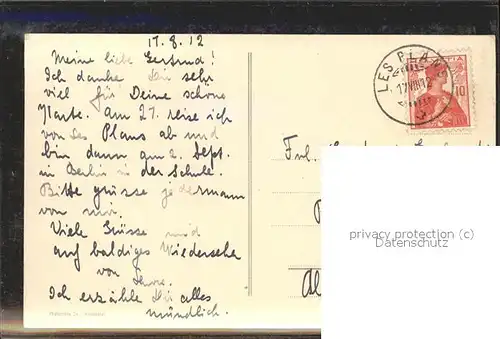 17.8.12
Meine liebe Gertrud!
Ich danke Dir sehr
viel für Deine schöne
Karte. Am 27. reise ich
von Les Plans ab und
bin dann am 2. Sept.
in Berlin in der Schule.
Bitte grüsse jedermann
von mir.
Viele Grüsse und
auf baldiges Wiedersehen
von
Ich erzähle Dir alles
mündlich.
LES PLANS
10
Frl.
privacy protection (c)
Datenschutz